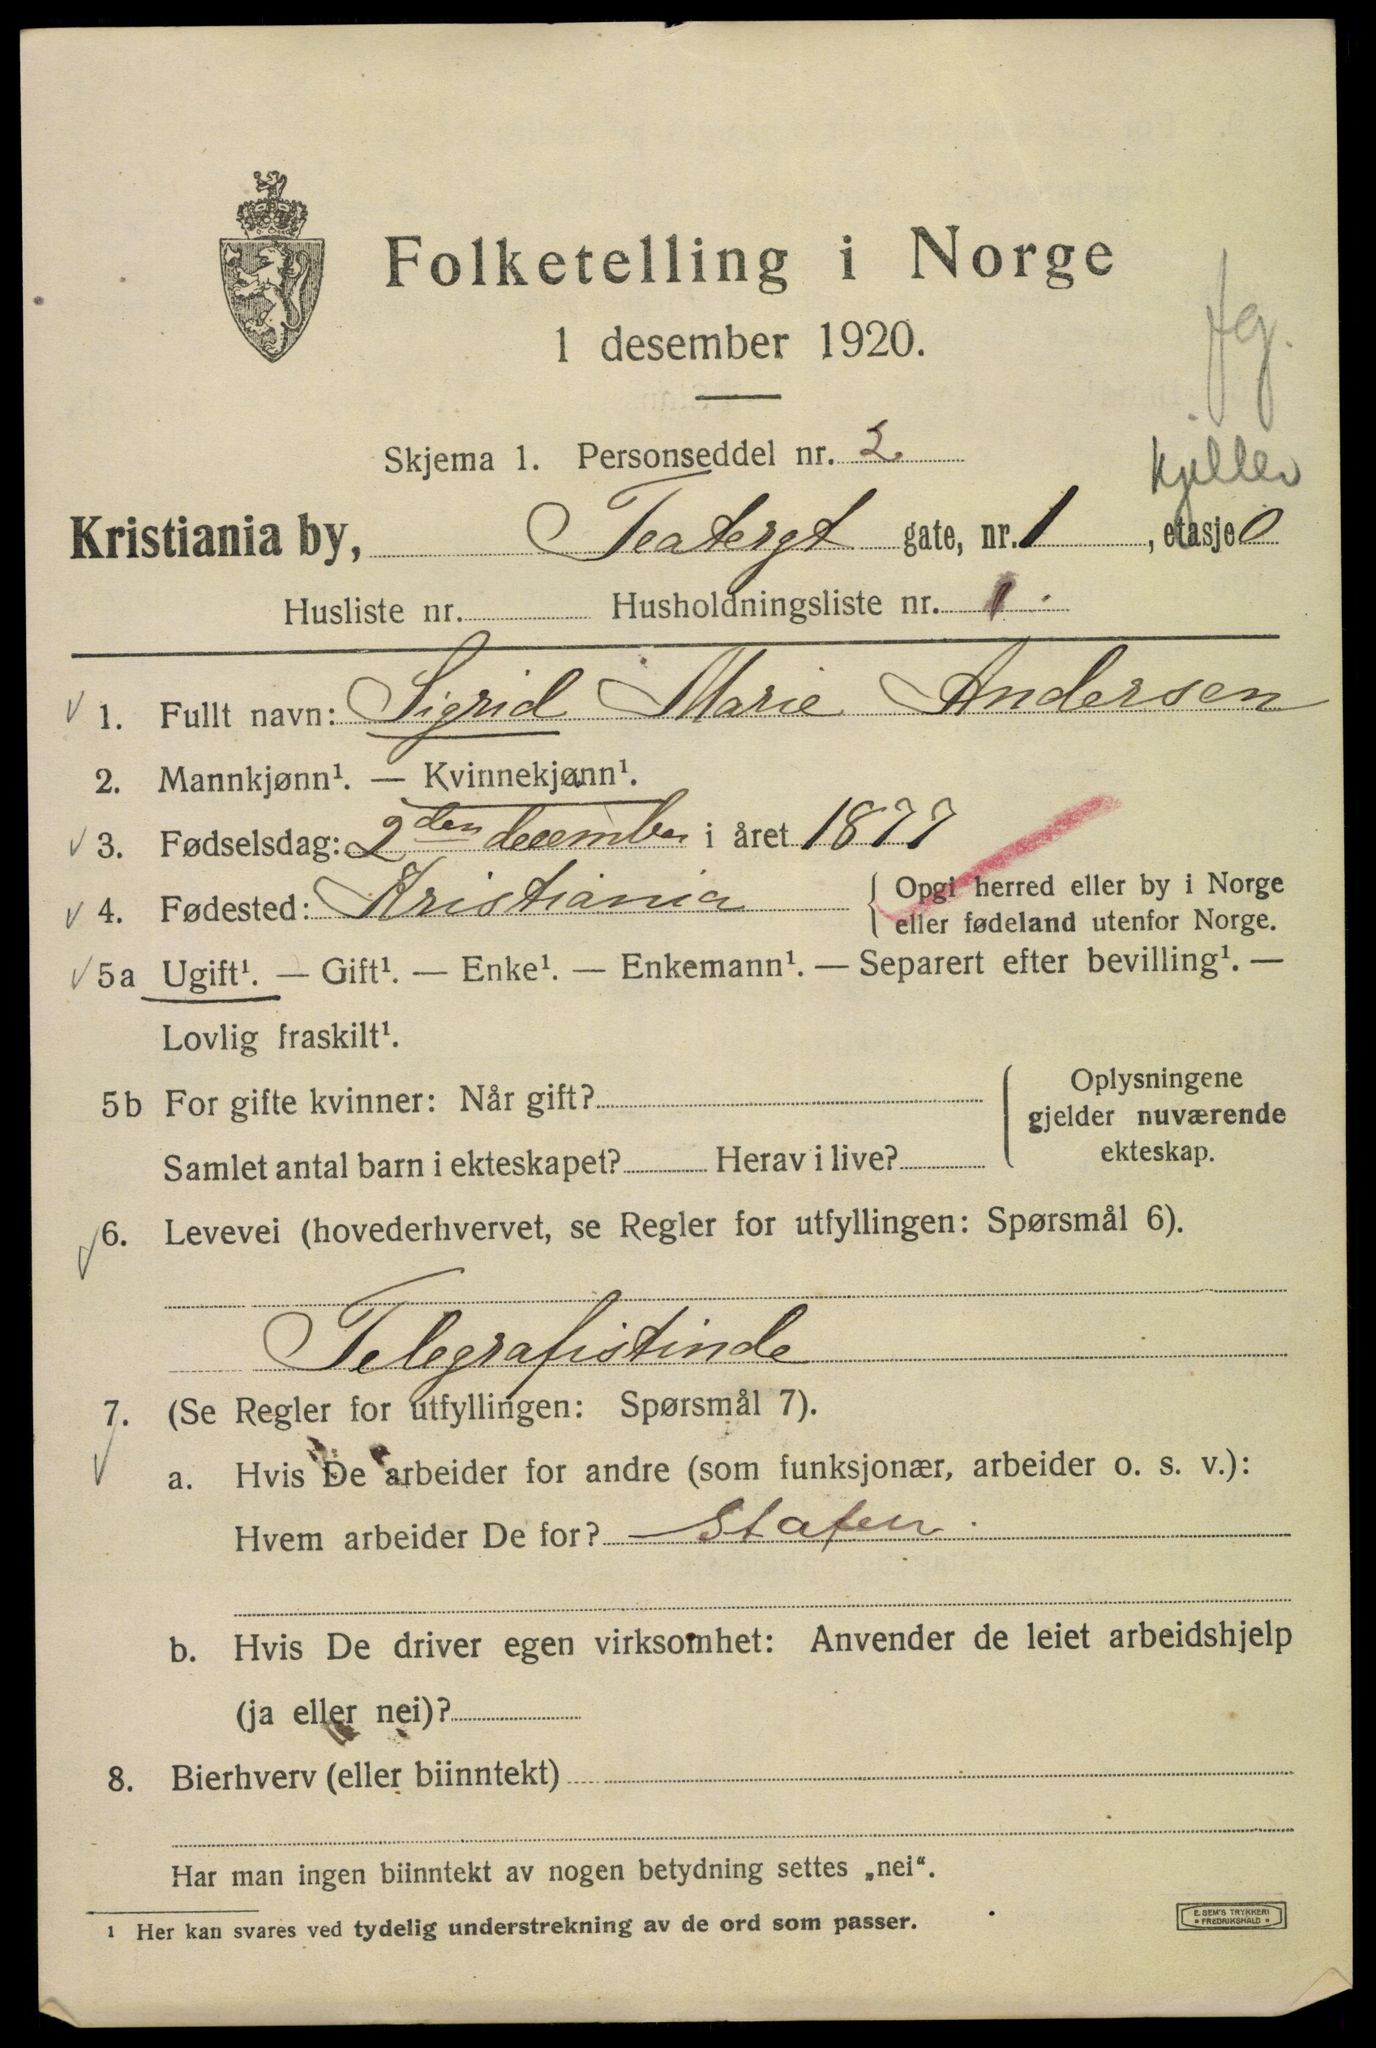 Folketelling i Norge
1 desember 1920.
fg.
Skjema 1. Personseddel nr. 2
kjeller
Kristiania by, Teatergt gate, nr. 1, etasje 0
Husliste nr. Husholdningsliste nr. 1.
1. Fullt navn: Sigrid Marie Andersen
2. Mannkjønn¹. — Kvinnekjønn¹.
3. Fødselsdag: 2den december i året 1877
4. Fødested: Kristiania
Opgi herred eller by i Norge
eller fødeland utenfor Norge.
5a Ugift¹. — Gift¹. — Enke¹. — Enkemann¹. — Separert efter bevilling¹. —
Lovlig fraskilt¹.
5b For gifte kvinner: Når gift?
Samlet antal barn i ekteskapet? Herav i live?
Oplysningene
gjelder nuværende
ekteskap.
6. Levevei (hovederhvervet, se Regler for utfyllingen: Spørsmål 6).
Telegrafistinde
7. (Se Regler for utfyllingen: Spørsmål 7).
a. Hvis De arbeider for andre (som funksjonær, arbeider o. s. v.):
Hvem arbeider De for? Staten.
b. Hvis De driver egen virksomhet: Anvender de leiet arbeidshjelp
(ja eller nei)?
8. Bierhverv (eller biinntekt)
Har man ingen biinntekt av nogen betydning settes „nei“.
1 Her kan svares ved tydelig understrekning av de ord som passer.
E. SEM'S TRYKKERI
• FREDRIKSHALD •